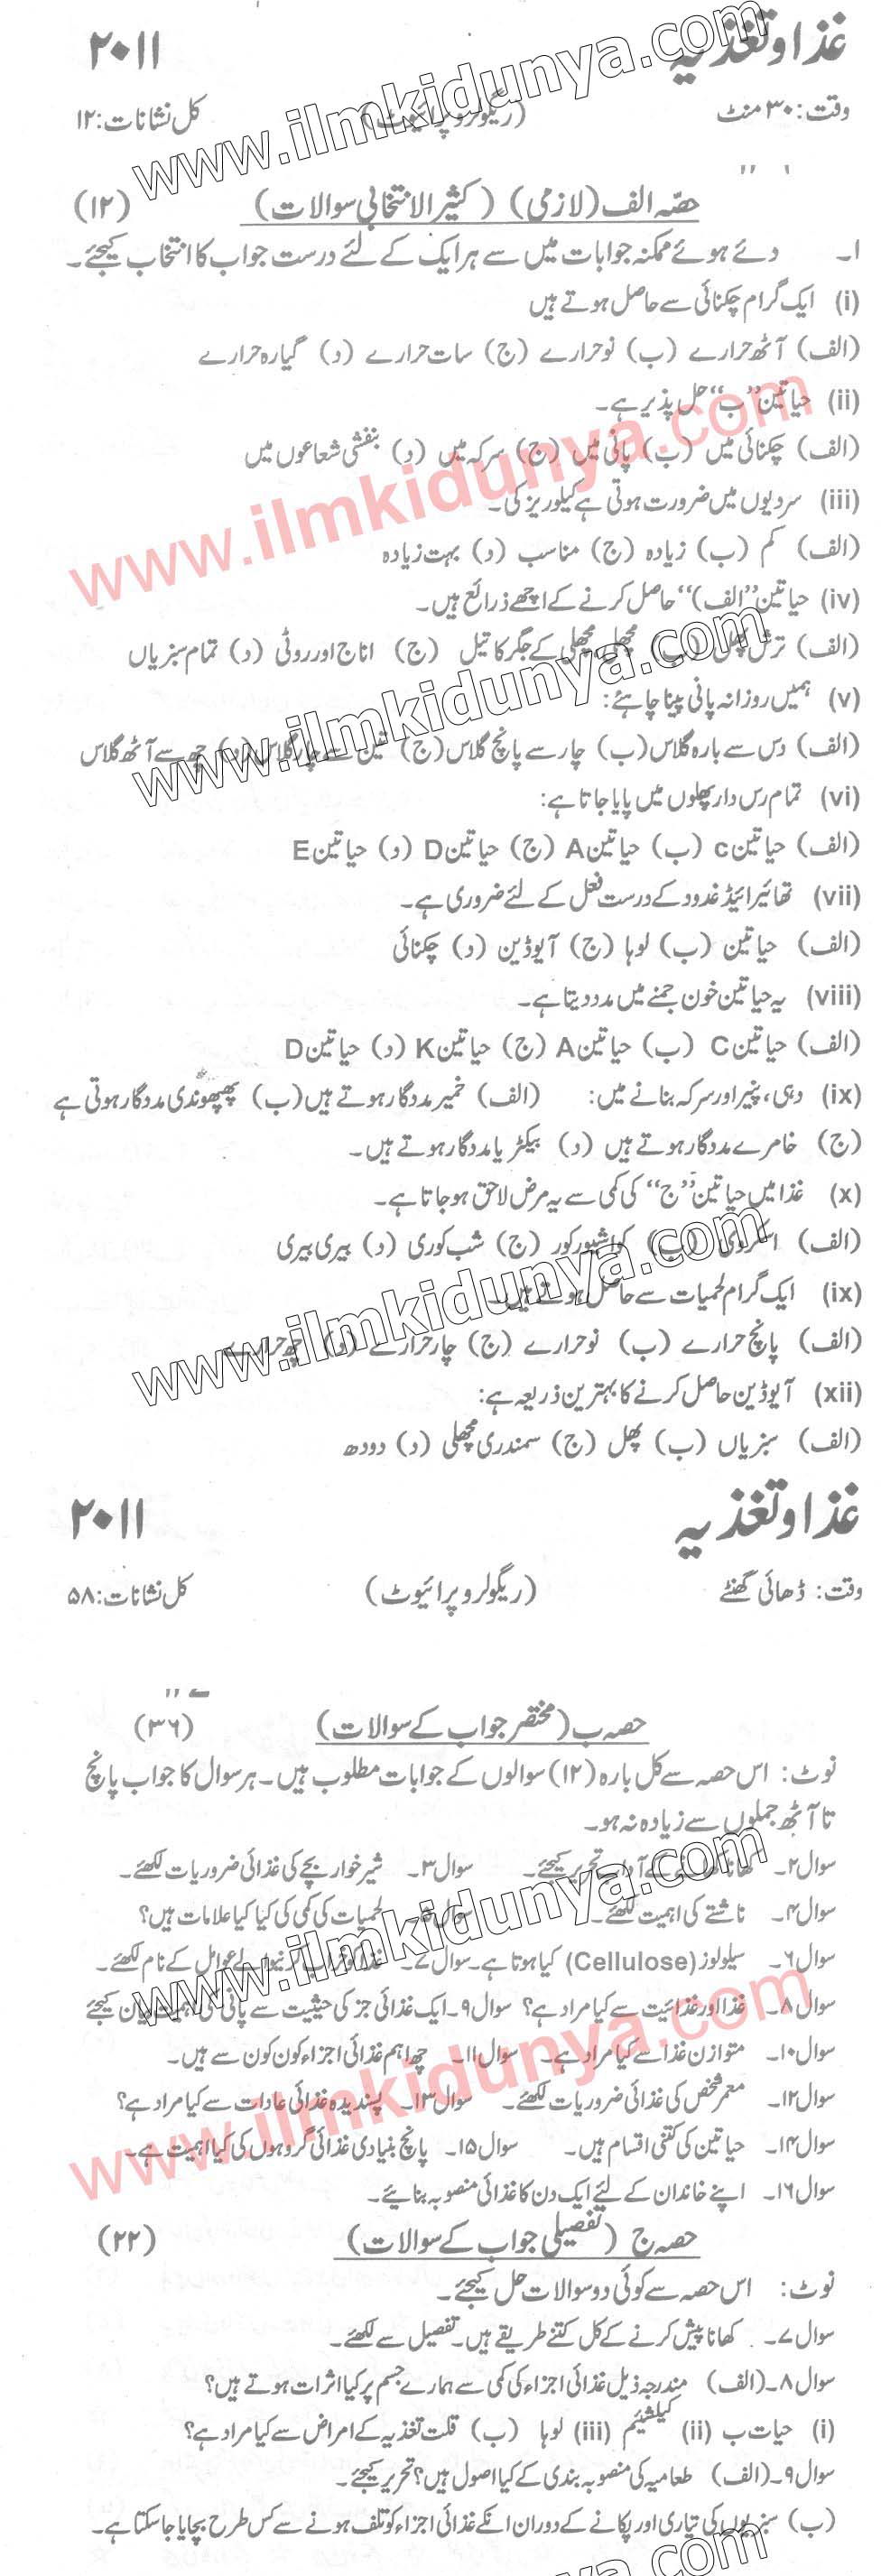 غذا و تغذیہ ۲۰۱۱
وقت: ۳۰ منٹ (ریگولر و پرائیوٹ) کل نشانات: ۱۲
حصّہ الف (لازمی) (کثیر الانتخابی سوالات) (۱۲)
۱۔ دئے ہوئے ممکنہ جوابات میں سے ہر ایک کے لئے درست جواب کا انتخاب کیجئے۔
(i) ایک گرام چکنائی سے حاصل ہوتے ہیں
(الف) آٹھ حرارے (ب) نو حرارے (ج) سات حرارے (د) گیارہ حرارے
(ii) حیاتین ”ب“ حل پذیر ہے۔
(الف) چکنائی میں (ب) پانی میں (ج) سرکہ میں (د) بنفشی شعاعوں میں
(iii) سردیوں میں ضرورت ہوتی ہے کیلوریز کی۔
(الف) کم (ب) زیادہ (ج) مناسب (د) بہت زیادہ
(iv) حیاتین ”(الف)“ حاصل کرنے کے اچھے ذرائع ہیں۔
(الف) ترش پھل (ب) مچھلی، مچھلی کے جگر کا تیل (ج) اناج اور روٹی (د) تمام سبزیاں
(v) ہمیں روزانہ پانی پینا چاہئے:
(الف) دس سے بارہ گلاس (ب) چار سے پانچ گلاس (ج) تین سے چار گلاس (د) چھ سے آٹھ گلاس
(vi) تمام رس دار پھلوں میں پایا جاتا ہے:
(الف) حیاتین c (ب) حیاتین A (ج) حیاتین D (د) حیاتین E
(vii) تھائیرائیڈ غدود کے درست فعل کے لئے ضروری ہے۔
(الف) حیاتین (ب) لوہا (ج) آیوڈین (د) چکنائی
(viii) یہ حیاتین خون جمنے میں مدد دیتا ہے۔
(الف) حیاتین C (ب) حیاتین A (ج) حیاتین K (د) حیاتین D
(ix) دہی، پنیر اور سرکہ بنانے میں: (الف) خمیر مددگار ہوتے ہیں (ب) پھپھوندی مددگار ہوتی ہے
(ج) خامرے مددگار ہوتے ہیں (د) بیکٹریا مددگار ہوتے ہیں۔
(x) غذا میں حیاتین ”ج“ کی کمی سے یہ مرض لاحق ہو جاتا ہے۔
(الف) اسکروی (ب) کواشیورکور (ج) شب کوری (د) بیری بیری
(ix) ایک گرام لحمیات سے حاصل ہوتے ہیں۔
(الف) پانچ حرارے (ب) نو حرارے (ج) چار حرارے (د) چھ حرارے
(xii) آیوڈین حاصل کرنے کا بہترین ذریعہ ہے:
(الف) سبزیاں (ب) پھل (ج) سمندری مچھلی (د) دودھ
غذا و تغذیہ ۲۰۱۱
وقت: ڈھائی گھنٹے (ریگولر و پرائیوٹ) کل نشانات: ۵۸
حصہ ب (مختصر جواب کے سوالات) (۳۶)
نوٹ: اس حصہ سے کل بارہ (۱۲) سوالوں کے جوابات مطلوب ہیں۔ ہر سوال کا جواب پانچ
تا آٹھ جملوں سے زیادہ نہ ہو۔
سوال ۲۔ کھانا کھانے کے آداب تحریر کیجئے۔ سوال ۳۔ شیر خوار بچے کی غذائی ضروریات لکھئے۔
سوال ۴۔ ناشتے کی اہمیت لکھئے۔ سوال ۵۔ لحمیات کی کمی کی کیا کیا علامات ہیں؟
سوال ۶۔ سیلولوز (Cellulose) کیا ہوتا ہے۔ سوال ۷۔ غذا کو خراب کرنیوالے عوامل کے نام لکھئے۔
سوال ۸۔ غذا اور غذائیت سے کیا مراد ہے؟ سوال ۹۔ ایک غذائی جز کی حیثیت سے پانی کی اہمیت بیان کیجئے
سوال ۱۰۔ متوازن غذا سے کیا مراد ہے۔ سوال ۱۱۔ چھ اہم غذائی اجزاء کون کون سے ہیں۔
سوال ۱۲۔ معمر شخص کی غذائی ضروریات لکھئے۔ سوال ۱۳۔ پسندیدہ غذائی عادات سے کیا مراد ہے؟
سوال ۱۴۔ حیاتین کی کتنی اقسام ہیں۔ سوال ۱۵۔ پانچ بنیادی غذائی گروہوں کی کیا اہمیت ہے۔
سوال ۱۶۔ اپنے خاندان کے لئے ایک دن کا غذائی منصوبہ بنائیے۔
حصہ ج (تفصیلی جواب کے سوالات) (۲۲)
نوٹ: اس حصہ سے کوئی دو سوالات حل کیجئے۔
سوال ۷۔ کھانا پیش کرنے کے کل کتنے طریقے ہیں۔ تفصیل سے لکھئے۔
سوال ۸۔ (الف) مندرجہ ذیل غذائی اجزاء کی کمی سے ہمارے جسم پر کیا اثرات ہوتے ہیں؟
(i) حیات ب (ii) کیلشیئم (iii) لوہا (ب) قلت تغذیہ کے امراض سے کیا مراد ہے؟
سوال ۹۔ (الف) طعامیہ کی منصوبہ بندی کے کیا اصول ہیں؟ تحریر کیجئے۔
(ب) سبزیوں کی تیاری اور پکانے کے دوران انکے غذائی اجزاء کو تلف ہونے سے کس طرح بچایا جا سکتا ہے۔
www.ilmkidunya.com
www.ilmkidunya.com
www.ilmkidunya.com
www.ilmkidunya.com
www.ilmkidunya.com
www.ilmkidunya.com